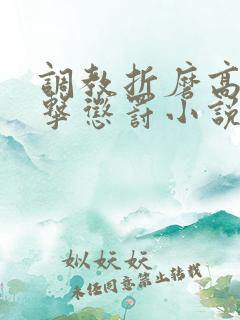 調教折磨高
擊懲罰小說
似妧妧
未经同意禁止转载